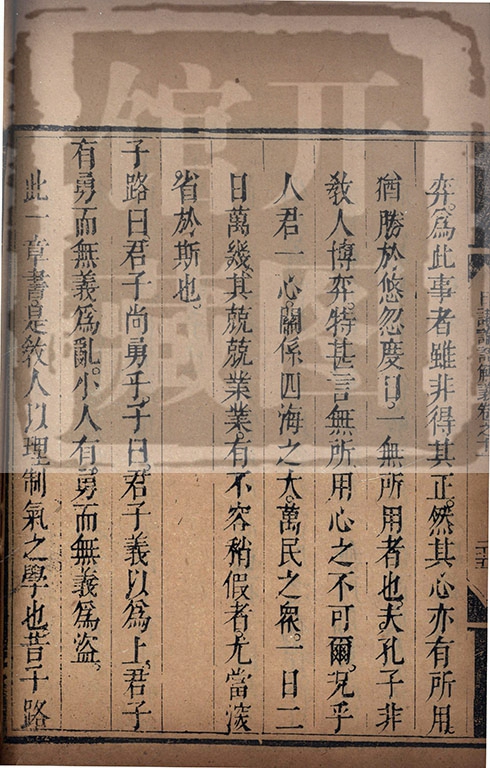 弈爲此事者雖非得其正然其心亦有所用
猶勝於悠忽度日一無所用者也夫孔子非
教人博弈特甚言無所用心之不可爾況乎
人君一心關係四海之大萬民之衆一日二
日萬幾其兢兢業業有不容稍假者尤當深
省於斯也
子路曰君子尚勇乎子曰君子義以爲上君子
有勇而無義爲亂小人有勇而無義爲盜
此一章書是教人以理制氣之學也昔子路